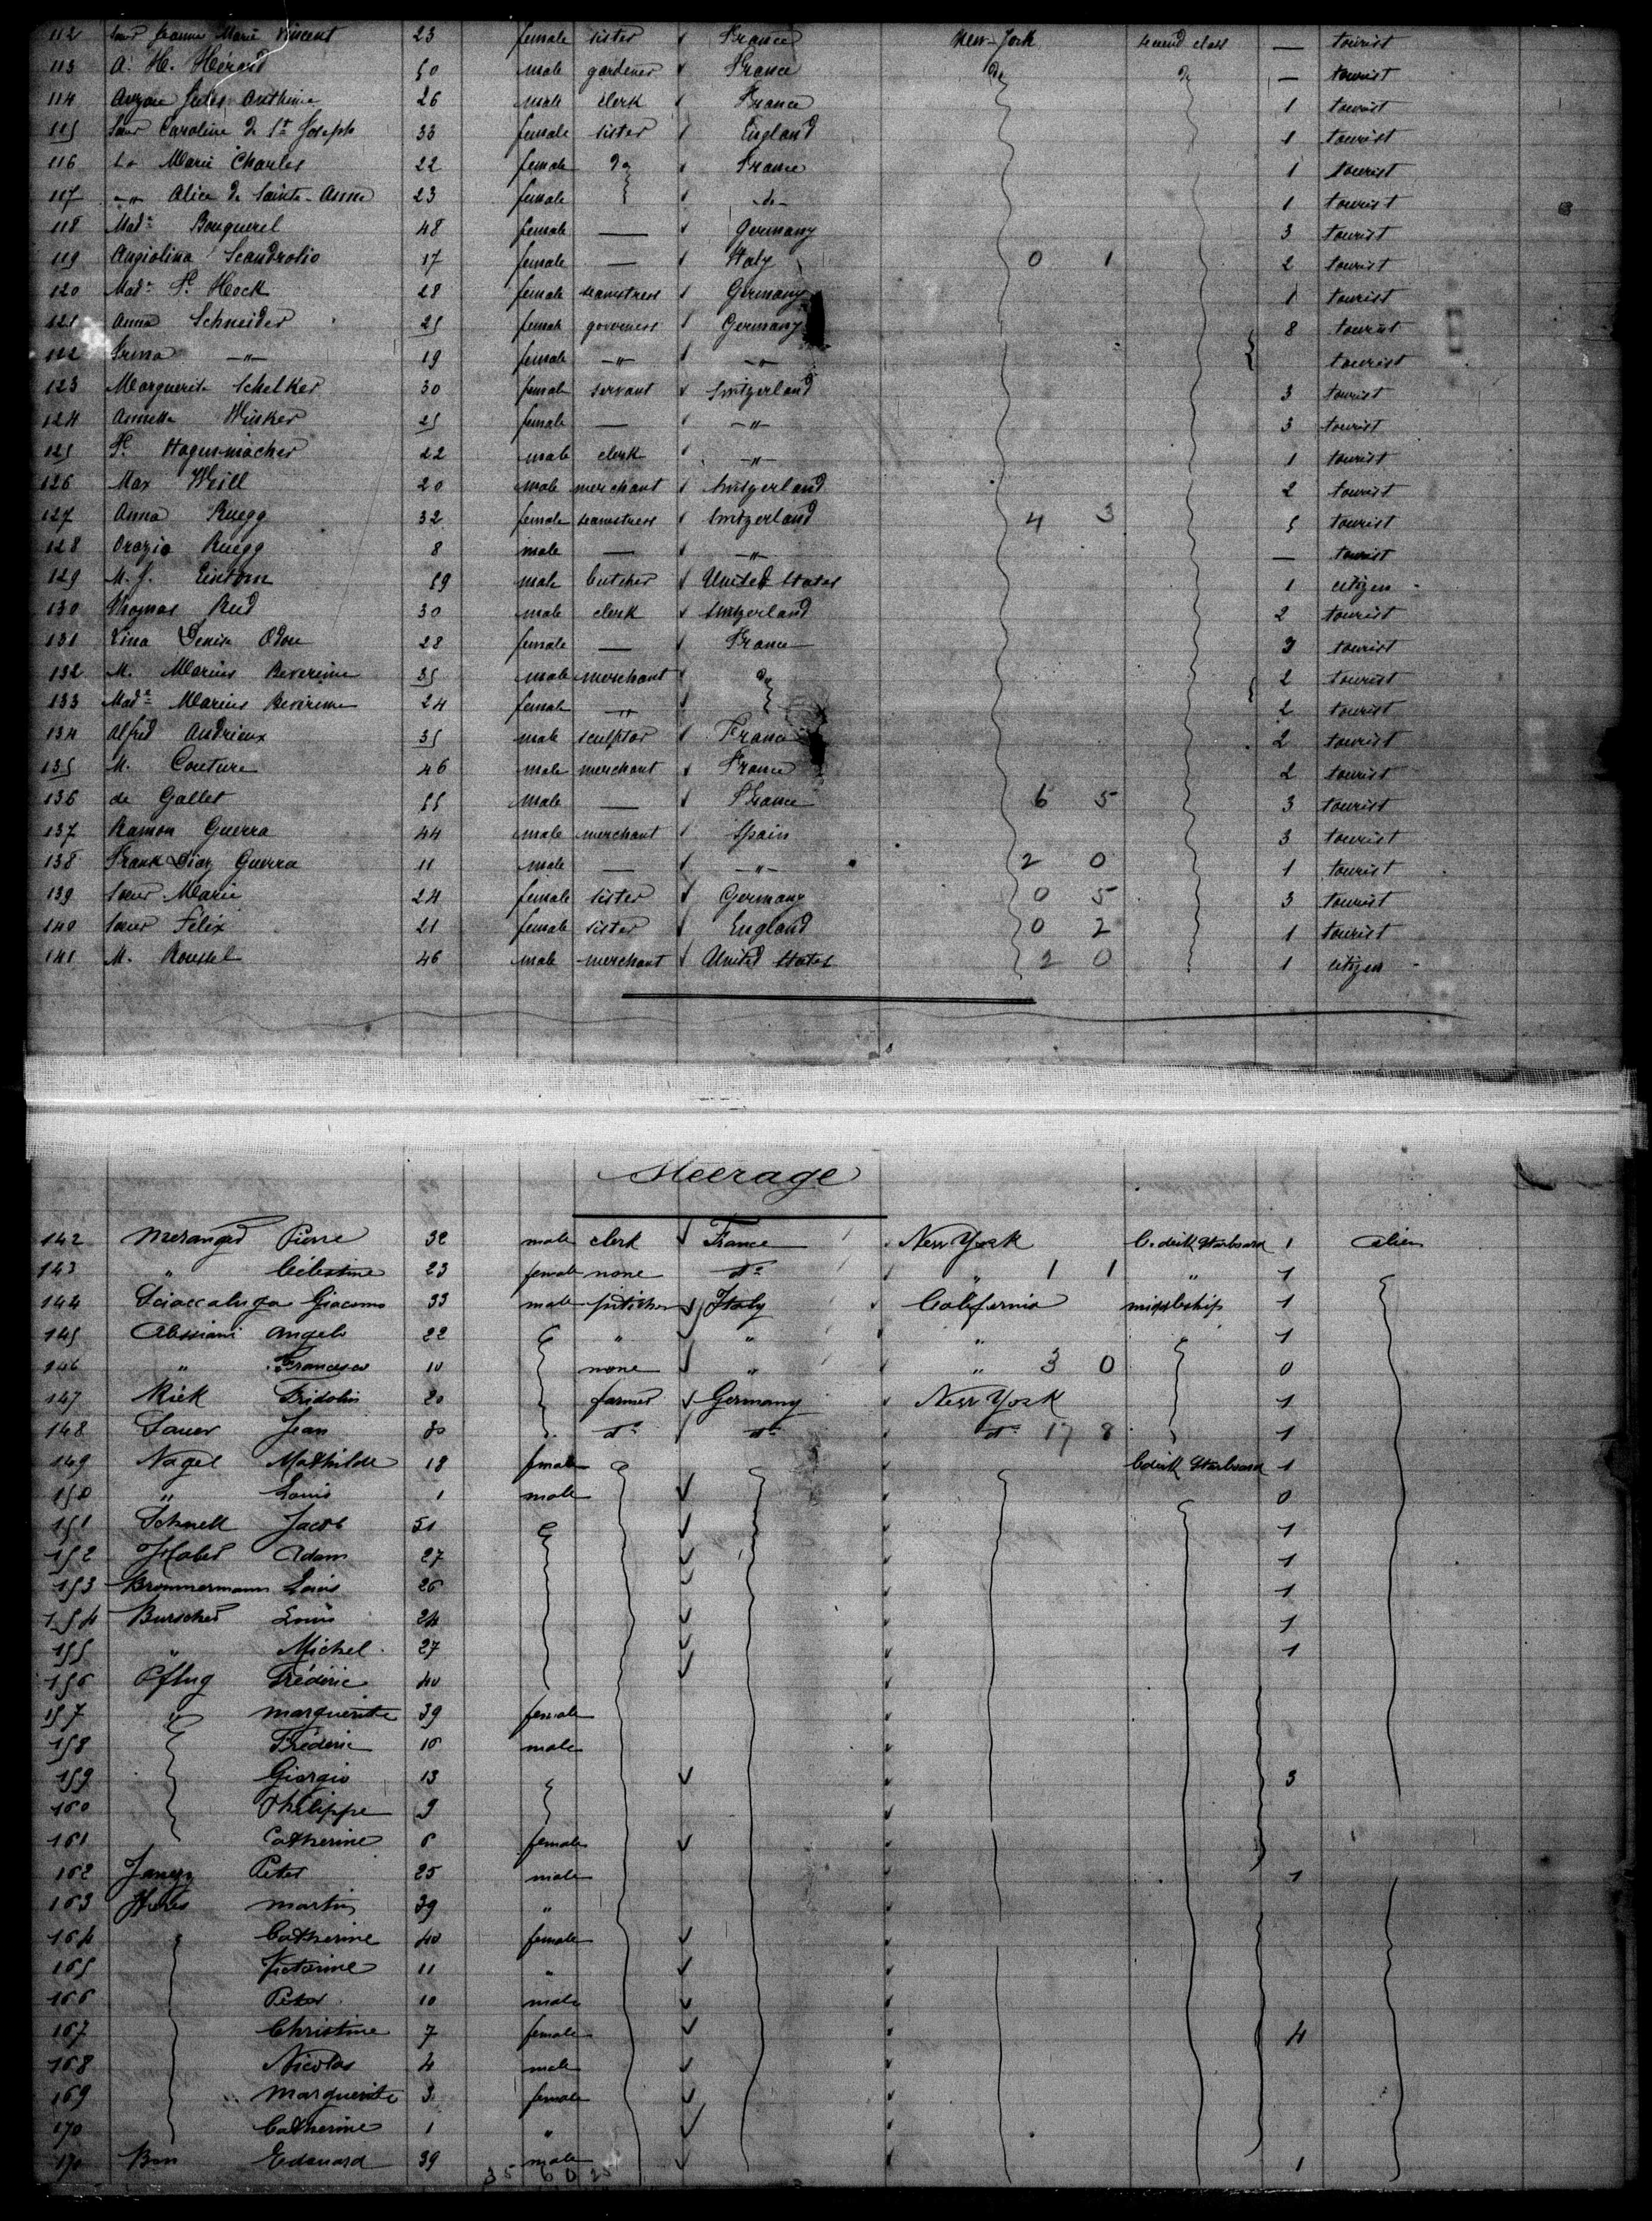 112 Soeur Jeanne Marie Vincent 23 female sister ✓ France New-York second class — tourist
113 A. H. Hérard 50 male gardener ✓ France do do — tourist
114 Jules Anthime 26 male clerk ✓ France 1 tourist
115 Soeur Caroline de St Joseph 33 female sister ✓ England 1 tourist
116 Marie Charles 22 female do ✓ France 1 tourist
117 -"- Alice de Sainte-Anne 23 female ✓ -do- 1 tourist
118 Made Bouquerel 48 female — ✓ Germany 3 tourist
119 Angiolina Scandrolio 17 female — ✓ Italy 0 1 2 tourist
120 Made P. Hock 28 female seamstress ✓ Germany 1 tourist
121 Anna Schneider 25 female governess ✓ Germany 8 tourist
122 Irma -"- 19 female -"- ✓ -"- tourist
123 Marguerite Schelker 30 female servant ✓ Switzerland 3 tourist
124 Annette 25 female — ✓ -"- 3 tourist
125 F. Hagenmacher 22 male clerk ✓ -"- 1 tourist
126 Max Weill 20 male merchant ✓ Switzerland 2 tourist
127 Anna Ruegg 32 female seamstress ✓ Switzerland 4 3 5 tourist
128 Orazio Ruegg 8 male — ✓ -"- — tourist
129 M. J. 59 male butcher ✓ United States 1 citizen -
130 Thomas Reid 30 male clerk ✓ Switzerland 2 tourist
131 Lina Denise 28 female — ✓ France 3 tourist
132 M. Marius Beverime 35 male merchant ✓ do 2 tourist
133 Made Marius Beverime 24 female -"- ✓ 2 tourist
134 Alfred Andrieux 35 male sculptor ✓ France 2 tourist
135 M. Couture 46 male merchant ✓ France 2 tourist
136 de Gallet 55 male — ✓ France 6 5 3 tourist
137 Ramon Guerra 44 male merchant ✓ Spain 3 tourist
138 Frank Diaz Guerra 11 male — ✓ -"- 2 0 1 tourist
139 Soeur Marie 24 female sister ✓ Germany 0 5 3 tourist
140 Soeur Félix 21 female sister ✓ England 0 2 1 tourist
141 M. Roussel 46 male merchant ✓ United States 2 0 1 citizen -
Steerage
142 Meranger Pierre 32 male clerk ✓ France New York C. deck Starboard 1 alien
143 " Célestine 23 female none do " 1 1 " 1
144 Sciaccaluga Giacomo 33 male ✓ Italy California midleship 1
145 Alessiani Angelo 22 " ✓ " " " 1
146 " Francesco 10 none ✓ " " 3 0 0
147 Rick Fridolin 20 farmer ✓ Germany New York 1
148 Sauer Jean 30 do do do 17 8 1
149 Nagel Mathilde 18 female C. deck Starboard 1
150 " Louis 1 male ✓ 0
151 Schnell Jacob 51 ✓ 1
152 Haber Adam 27 ✓ 1
153 Brommermann Louis 26 ✓ 1
154 Burscher Louis 24 ✓ 1
155 " Michel 27 ✓ 1
156 Pflug Fréderic 40 ✓
157 " Marguerite 39 female
158 Fréderic 16 male
159 Giorgio 13 ✓ 3
160 Philippe 9
161 Catherine 6 female ✓
162 Peter 25 male 1
163 Martin 39 "
164 Catherine 40 female ✓
165 Victorine 11 " ✓
166 Peter 10 male ✓
167 Christine 7 female ✓ 4
168 Nicolas 4 male ✓
169 Marguerite 3 female ✓
170 Catherine 1 " ✓
Edouard 39 male ✓ 1